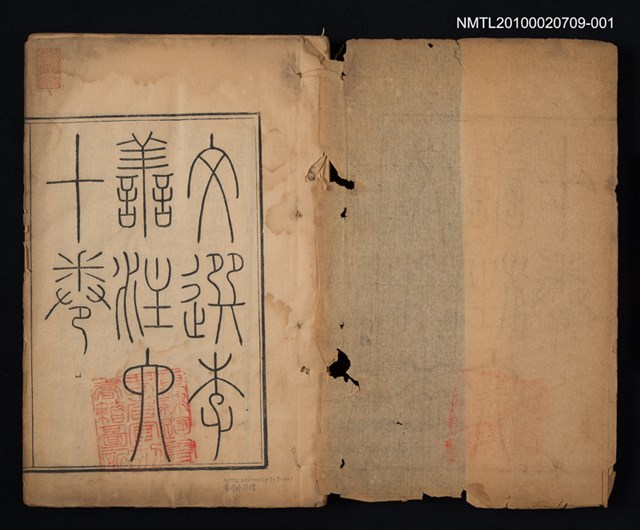 NMTL20100020709-001
文選李
譱注六
十卷